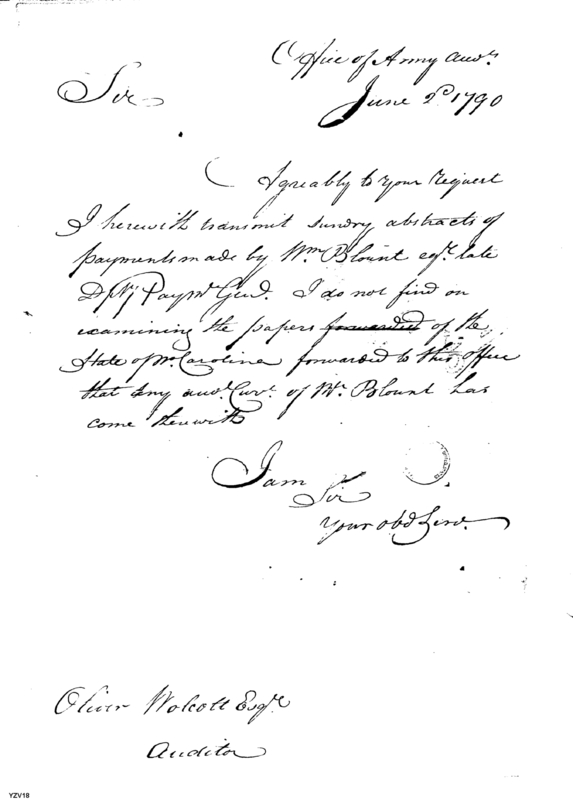 Office of Army Accts
June 2d 1790
Sir
Agreably to your request
I herewith transmit sundry abstracts of
payments made by Wm Blount esqr. late
Dpty Paymr Genl. I do not find on
examining the papers forwarded of the
State of No. Carolina forwarded to this office
that any of Mr. Blount has
come therewith
I am
Sir
Your obd Serv.
Oliver Wolcott Esqr
Auditor
YZV18